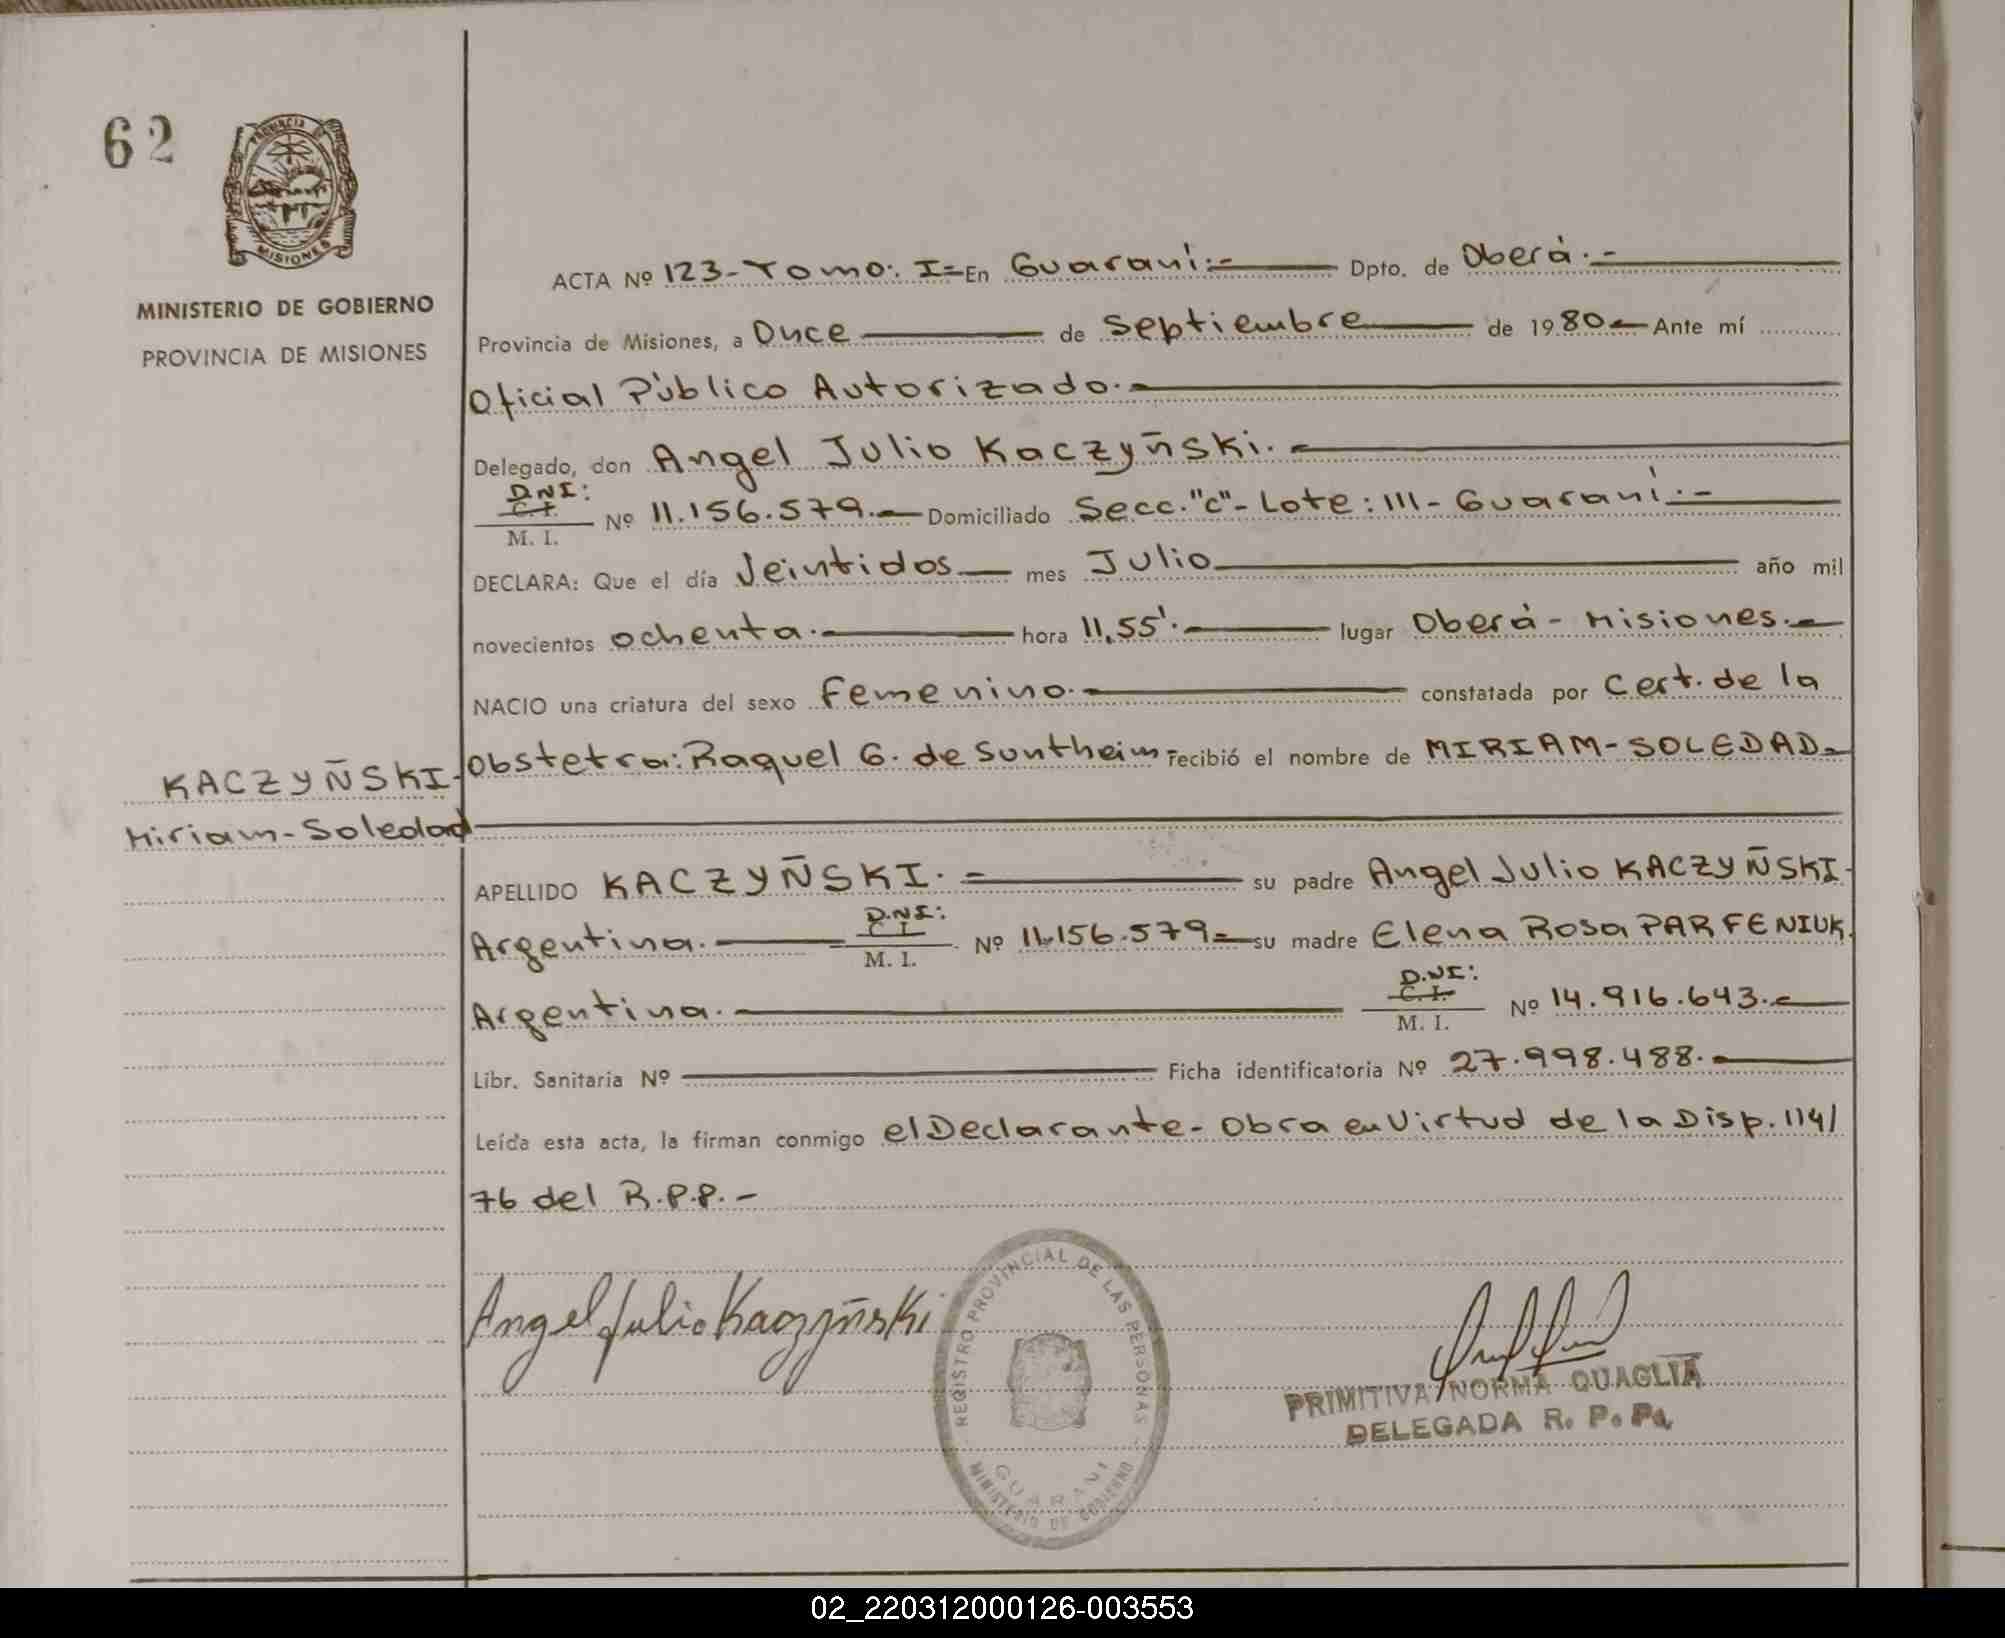 62
PROVINCIA DE
MISIONES
MINISTERIO DE GOBIERNO
PROVINCIA DE MISIONES
ACTA Nº 123-Tomo: I=En Guaraní:- Dpto. de Oberá.-
Provincia de Misiones, a Once de Septiembre de 1980.- Ante mí
Oficial Público Autorizado.-
Delegado, don Angel Julio Kaczyñski.-
D.N.I:
C.I.
M. I. Nº 11.156.579.- Domiciliado Secc."C"- Lote: 111- Guaraní.-
DECLARA: Que el día Veintidos mes Julio año mil
novecientos ochenta.- hora 11,55'.- lugar Oberá- Misiones.-
NACIO una criatura del sexo Femenino.- constatada por Cert. de la
Obstetra: Raquel G. de Suntheim- recibió el nombre de MIRIAM-SOLEDAD-
KACZYÑSKI.
Miriam-Soledad
APELLIDO KACZYÑSKI.- su padre Angel Julio KACZYÑSKI-
Argentina.- D.N.I:
C I
M. I. Nº 11.156.579- su madre Elena Rosa PARFENIUK.
Argentina.- D.NI:
C.I.
M. I. Nº 14.916.643.-
Libr. Sanitaria Nº Ficha identificatoria Nº 27.998.488.-
Leída esta acta, la firman conmigo el Declarante- Obra en Virtud de la Disp. 114/
76 del R.P.P.-
Angel Julio Kaczyñski
REGISTRO PROVINCIAL DE LAS PERSONAS
GUARANI
MINISTERIO DE GOBIERNO
PRIMITIVA NORMA QUAGLIA
DELEGADA R. P. P.
02_220312000126-003553